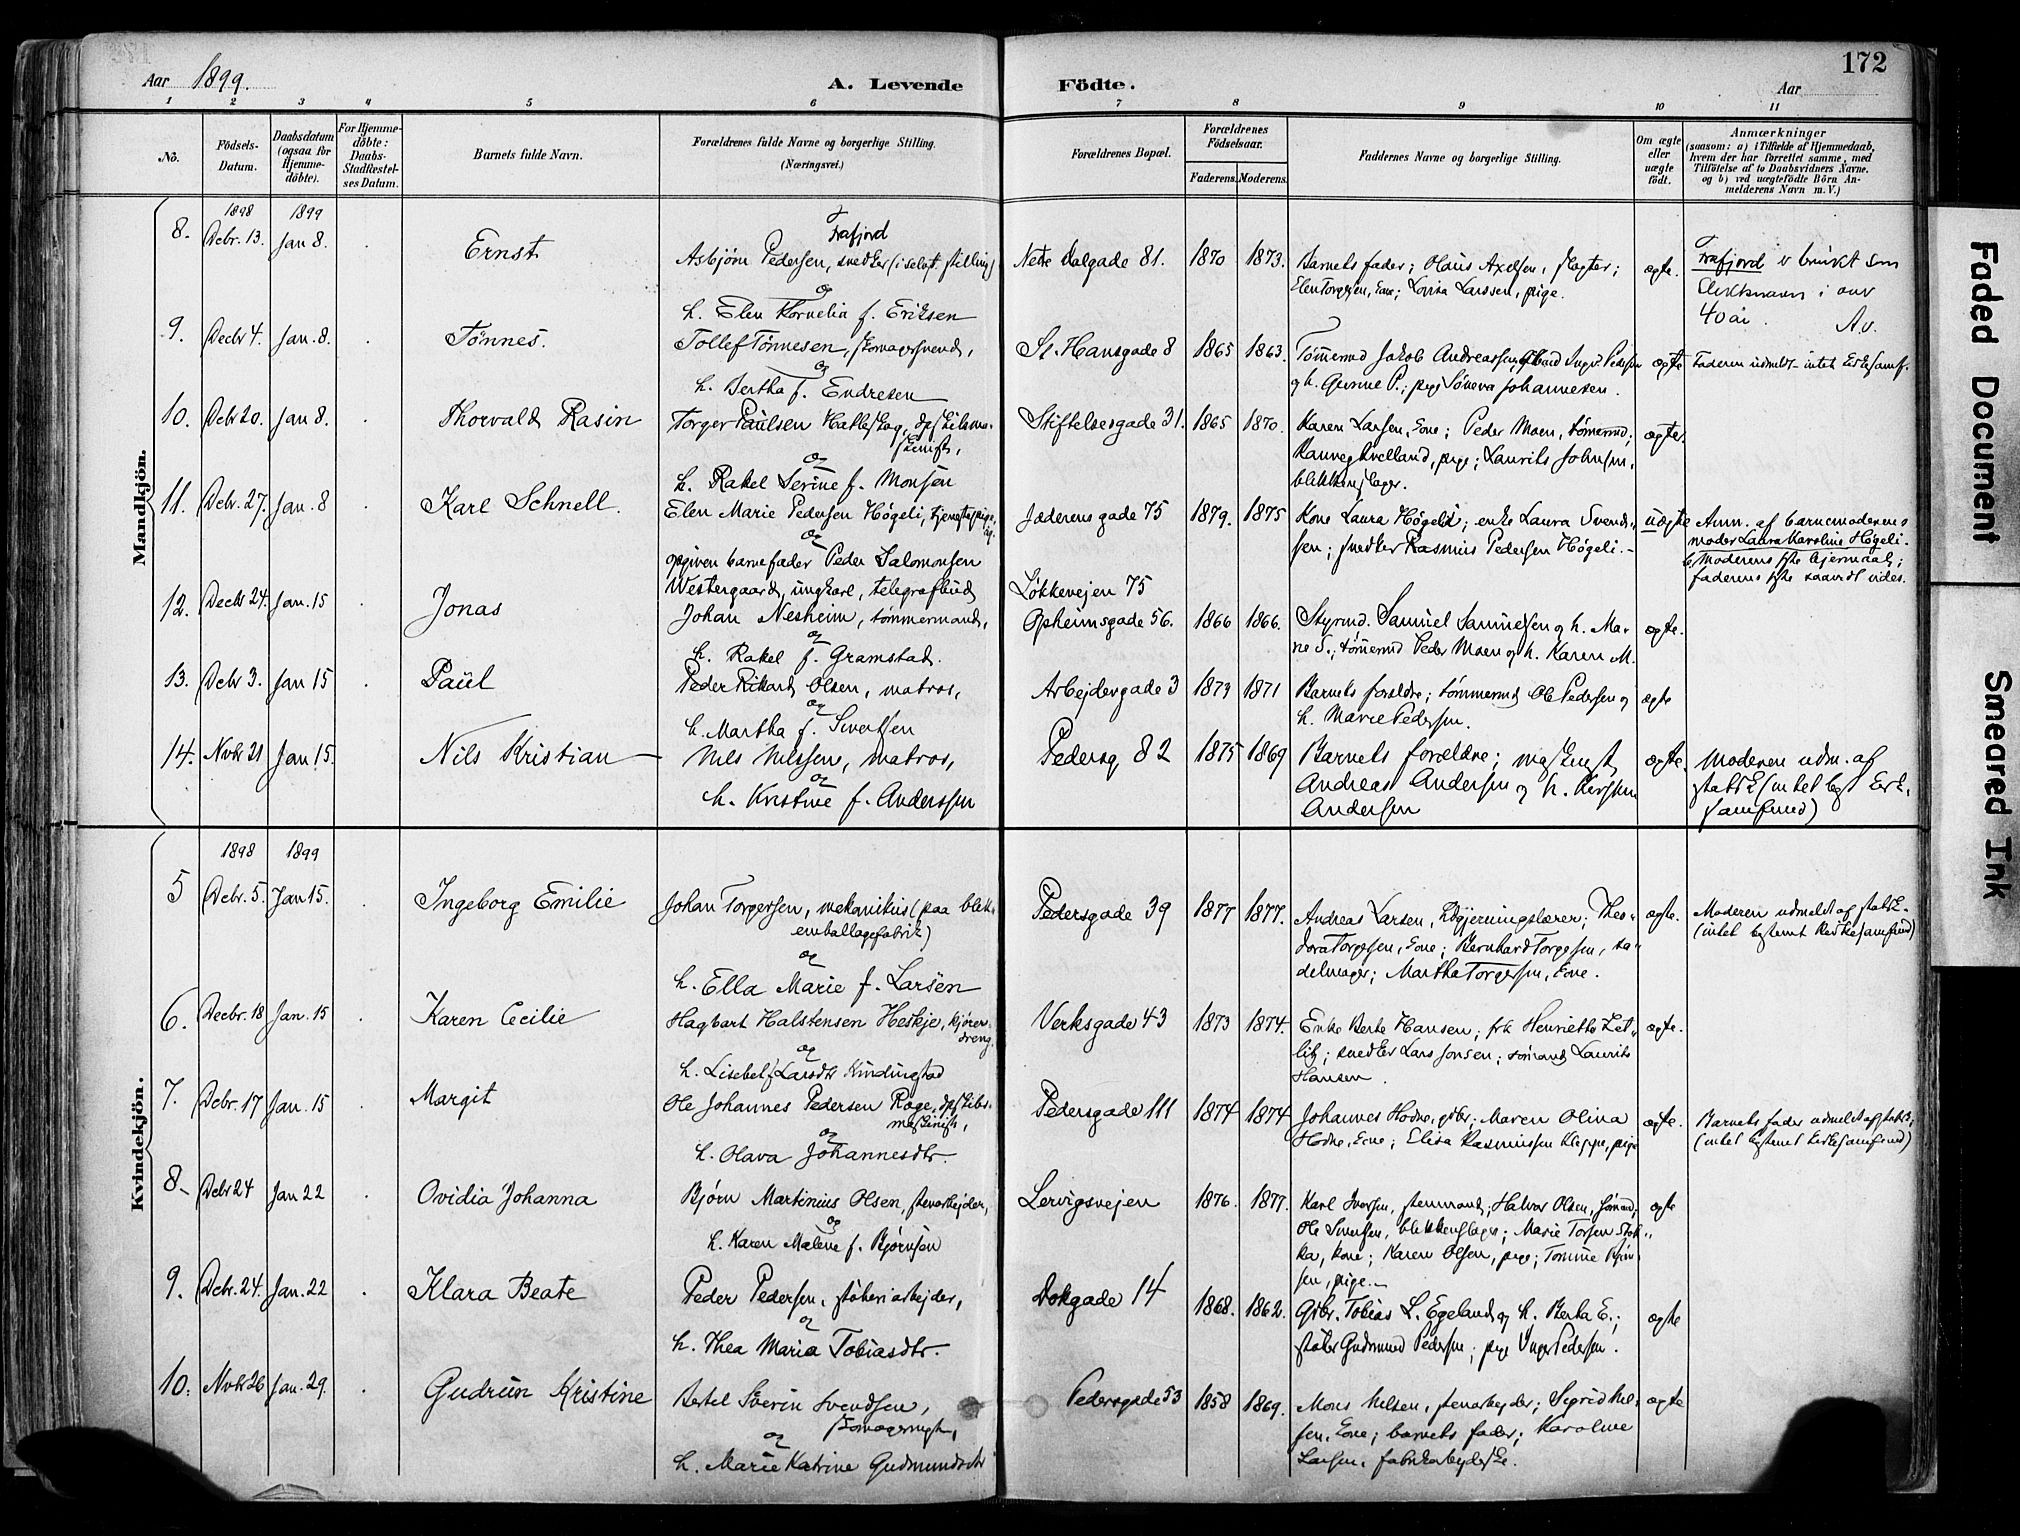 172
Aar 1899.
A. Levende Födte.
Aar
1 2 3 4 5 6 7 8 9 10 11
No.
Födsels-Datum.
Daabsdatum (ogsaa for Hjemme-döbte).
For Hjemme-döbte: Daabs-Stadfæstel-ses Datum.
Barnets fulde Navn.
Forældrenes fulde Navne og borgerlige Stilling.
(Næringsvei.)
Forældrenes Bopæl.
Forældrenes Födselsaar.
Faderens. Moderens.
Faddernes Navne og borgerlige Stilling.
Om ægte eller uægte födt.
Anmærkninger
(saasom: a) i Tilfælde af Hjemmedaab,
hvem der har forrettet samme, med
Tilföielse af to Daabsvidners Navne.
og b) ved uægtefödte Börn An-
melderens Navn m. V.)
Mandkjön.
1898 1899
8. Debr. 13. Jan 8. Ernst
Trafjord
Asbjørn Pedersen, snedker (i selvst. stilling)
og
h. Elen Kornelia f. Eriksen
Nedre Dalgade 81. 1870 1873.
Barnets fader; Olaus Axelsen, slagter;
Elen Torgersen, kone; Lovisa Larssen, pige.
ægte.
Trafjord er brukt som
slektsnavn i over
40 år. A.v.
9. Decbr 4. Jan. 8. Tønnes.
Tollef Tønnesen, skomagersvend,
og
h. Bertha f. Endresen
St. Hansgade 8 1865 1863.
Tømmermd Jakob Andreassen,
og h. Gurine P.; pige Søneva Johannesen.
ægte
Faderen udmeldt - intet kirkesamf.
10. Debr 20. Jan 8. Thorvald Rasin
Torger Paulsen Hatleskog, dpskibsma-
skinist,
og
h. Rakel Serine f. Monsen
Stiftelsesgade 31. 1865 1870.
Karen Larsen, kone; Peder Moen, tømermd;
Rannveg Kvelland, pige; Laurits Johnsen,
blikkenslager.
ægte.
11. Debr. 27. Jan. 8 Karl Schnell.
Elen Marie Pedersen Høgeli, tjenestepige,
og
opgiven barnefader Peder Salomonsen
Westergaard, ungkarl, telegrafbud
Jæderens gade 75 1879. 1875
Løkkevejen 75
Kone Laura Høgeli; enke Laura Svend-
sen; snedker Rasmus Pedersen Høgeli.
uægte
Anm. af barnemoderens
moder Laura Karoline Høgeli.
Moderens 1ste lejermaal;
faderens 1ste saavidt vides.
12. Decbr 24. Jan. 15 Jonas
Johan Nesheim, tømmermand,
og
h. Rakel f. Gramstad.
Opheimsgade 56. 1866 1866.
Styrmd. Samuel Samuelsen og h. Ma-
rie S.; tømermd Peder Moen og h. Karen M.
ægte.
13. Debr 3. Jan 15 Paul
Peder Rikard Olsen, matros,
og
h. Martha f. Sivertsen
Arbejdergade 3 1873 1871
Barnets forældre; tømmermd Ole Pedersen og
h. Marie Pedersen.
ægte
14. Nvbr 21 Jan 15. Nils Kristian
Nils Nilssen, matros,
og
h. Kristine f. Anderssen
Pedersg 82 1875 1869
Barnets forældre; maskinist
Andreas Andersen og h. Kirstine
Andersen
ægte.
Moderen udm. af
statsk (intet bgst kirk.
samfund)
Kvindekjön.
1898 1899
5 Debr. 5. Jan 15. Ingeborg Emilie
Johan Torgersen, mekanikus (paa blik-
emballagefabrik)
og
h. Ella Marie f. Larsen
Pedersgade 39 1877 1877.
Andreas Larsen, Theo-
dora Torgersen, kone; Bernhard Torgersen, sa-
delmager; Martha Torgersen, kone.
ægte.
Moderen udmeldt af statsk.
(intet bestemt kirkesamfund)
6. Decbr. 18 Jan. 15 Karen Cecilie
Hagbart Halstensen Heskje, kjøre-
dreng.
og
h. Lisebet Larsdtr Kindingstad
Verksgade 43 1873 1874.
Enke Berte Hansen; frk Henriette Zet-
litz; snedker Lars Jonsen; sømand Laurits
Hansen.
ægte.
7. Debr. 17 Jan. 15 Margit
Ole Johannes Pedersen Rage, dpskibs-
maskinist,
og
h. Olava Johannesdtr.
Pedersgade 111 1874 1874
Johannes Hodne, gdbr; Maren Olina
Hodne, kone; Elisa Rasmussen Kleppe, pige
ægte.
Barnets fader udmeldt af statsk;
(intet bestemt kirkesamfund)
8 Debr 24 Jan 22 Ovidia Johanna
Bjørn Martinius Olsen, stenarbejder,
og
h. Karen Malene f. Bjørnsen
Lervigsvejen 1876. 1877.
Karl Iversen, stenmand; Halvor Olsen, sømand;
Ole Sivertsen, blikkenslager; Marie Torsen Stok-
ka, kone; Karen Olsen, pige; Tomine Bjørn-
sen, pige.
ægte
9. Debr. 24. Jan. 22 Klara Beate
Peder Pedersen, støberiarbejder,
og
h. Thea Maria Tobiasdtr.
Dokgade 14 1868. 1862.
Gdbr. Tobias L. Egeland og h. Berta E.;
støber Gudmund Pedersen; pige Inger Pedersen.
ægte
10. Nvbr 26 Jan. 29. Gudrun Kristine
Bertel Severin Svendsen,
skomagersv.,
og
h. Marie Katrine Gudmundsdtr
Pedersgade 53 1858 1869.
Mons Nilsen, stenarbejder; Sigrid Nil-
sen, kone; barnets fader; Karoline
Larsen, fabrikarbejderske.
ægte
Faded Document
Smeared Ink